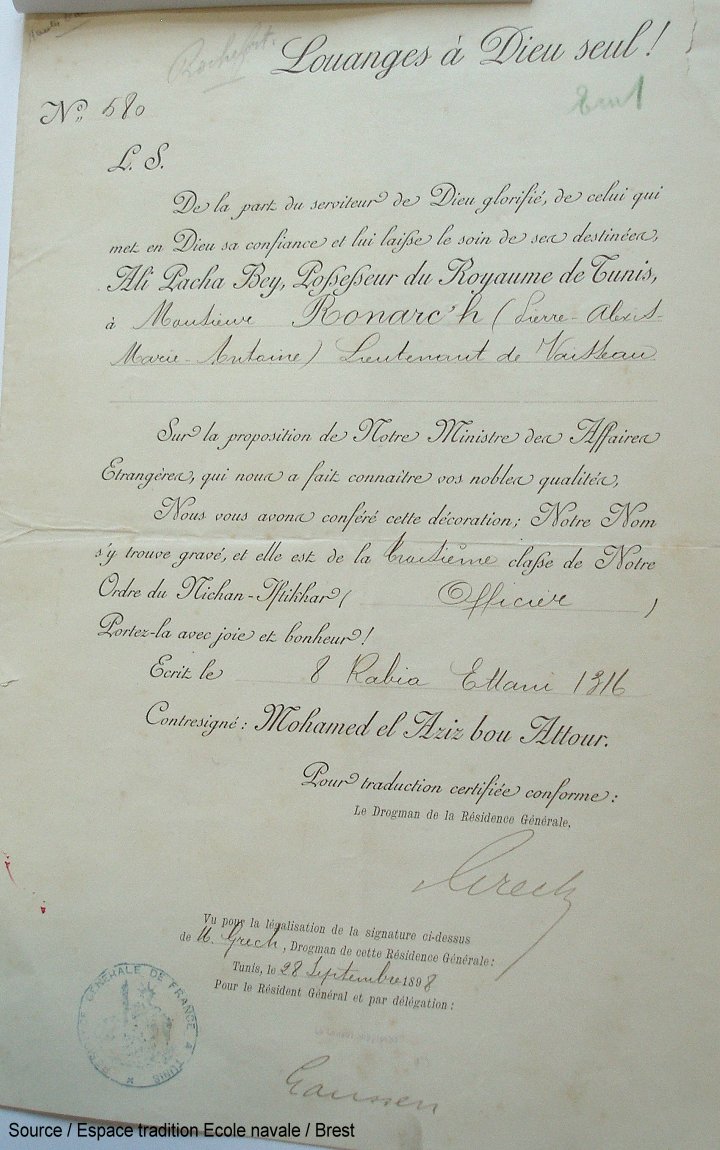 Rochefort.
Louanges à Dieu seul!
N° 580
L. S.
De la part du serviteur de Dieu glorifié, de celui qui
met en Dieu sa confiance et lui laisse le soin de ses destinées,
Ali Pacha Bey, Possesseur du Royaume de Tunis,
à Monsieur Ronarc'h (Pierre-Alexis-
Marie-Antoine) Lieutenant de Vaisseau
Sur la proposition de Notre Ministre des Affaires
Etrangères, qui nous a fait connaitre vos nobles qualités,
Nous vous avons conféré cette décoration; Notre Nom
s'y trouve gravé, et elle est de la troisième classe de Notre
Ordre du Nichan-Iftikhar ( Officier )
Portez-la avec joie et bonheur!
Ecrit le 8 Rabia Ettani 1316
Contresigné: Mohamed el Aziz bou Attour.
Pour traduction certifiée conforme:
Le Drogman de la Résidence Générale,
Grech
Vu pour la légalisation de la signature ci-dessus
de M. Grech, Drogman de cette Résidence Générale:
Tunis, le 28 Septembre 1898
Pour le Résident Général et par délégation:
RESIDENCE GENERALE DE FRANCE A TUNIS
Gaussen
Source / Espace tradition Ecole navale / Brest